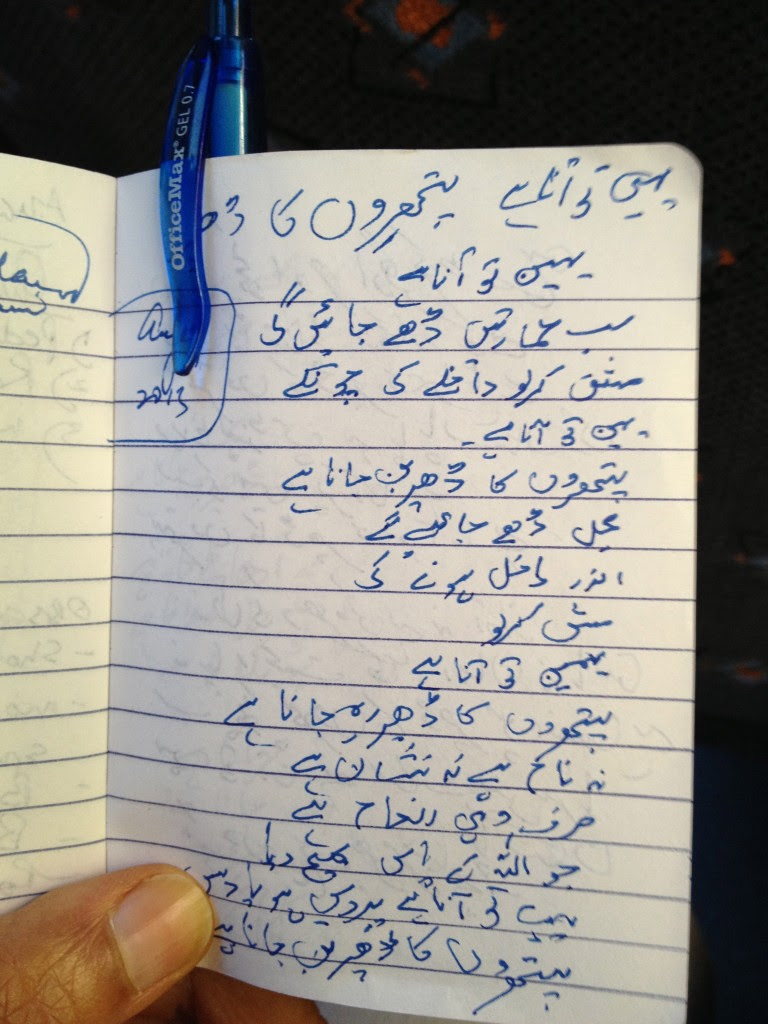 یہیں تو آنا ہے پتھروں کا ڈھ
یہیں تو آنا ہے
سب عمارتیں ڈھے جائیں گی
مشق کرلو داخلے کی
یہیں تو آنا ہے۔
پتھروں کا ڈھیر بن جانا ہے
محل ڈھے جائیں گے
اندر داخل ہونے کی
مشق کرلو
یہیں تو آنا ہے
پتھروں کا ڈھیر رہ جانا ہے
نہ نام ہے نہ نشان ہے
صرف وہی انعام ہے
جو اللہ نے
یہیں تو آنا ہے
پتھروں کا ڈھیر بن جانا ہے
Aug
2013
OfficeMax® GEL 0.7